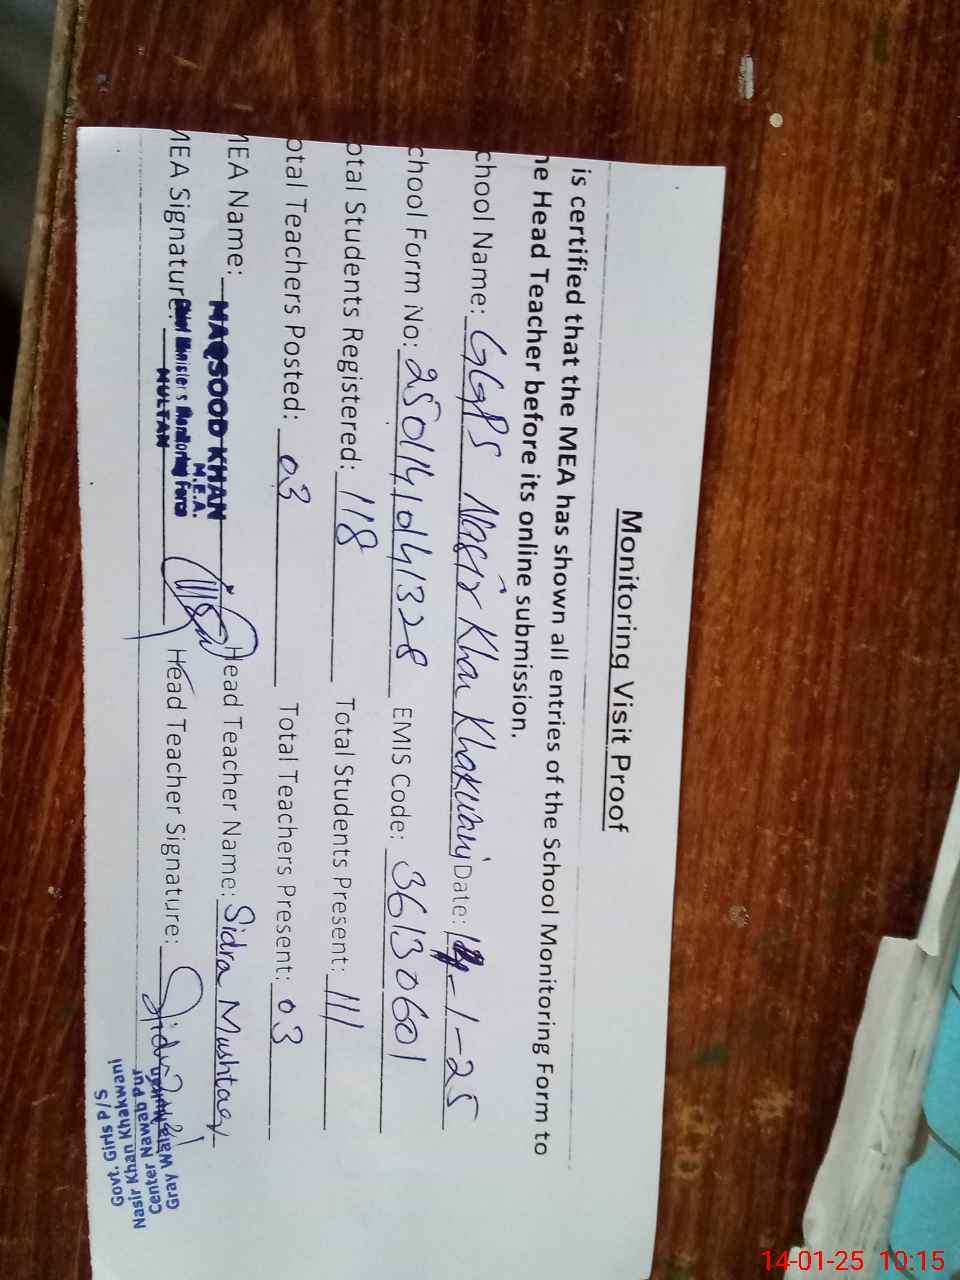 Monitoring Visit Proof
is certified that the MEA has shown all entries of the School Monitoring Form to
he Head Teacher before its online submission.
chool Name: GGPS Nasir Khan Khakwani Date: 14-1-25
chool Form No: 25011410141328 EMIS Code: 36130601
otal Students Registered: 118 Total Students Present: 111
otal Teachers Posted: 03 Total Teachers Present: 03
MEA Name: MAQSOOD KHAN Head Teacher Name: Sidra Mushtaq
M.E.A.
MEA Signature: Chief Minister's Monitoring Force Head Teacher Signature:
MULTAN
Govt. Girls P/S
Nasir Khan Khakwani
Center Nawab Pur
Gray Wala
14-01-25 10:15